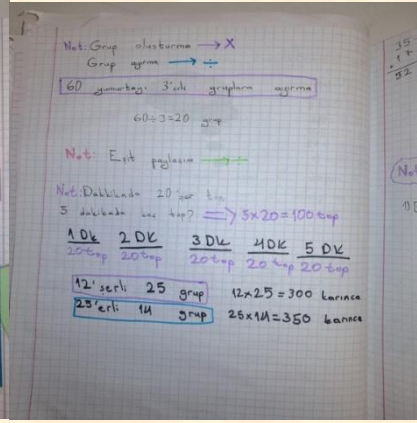 Not: Grup oluşturma → X
Grup ayırma → ÷
60 yumurtayı 3'erli gruplara ayırma
60÷3=20 grup
Not: Eşit paylaşım → ÷
Not: Dakikada 20 top
5 dakikada kaç top? ⇒ 5x20=100 top
1 DK 2 DK 3 DK 4 DK 5 DK
20 top 20 top 20 top 20 top 20 top
12'şerli 25 grup 12x25=300 karınca
25'erli 14 grup 25x14=350 karınca
35
17
52
Not